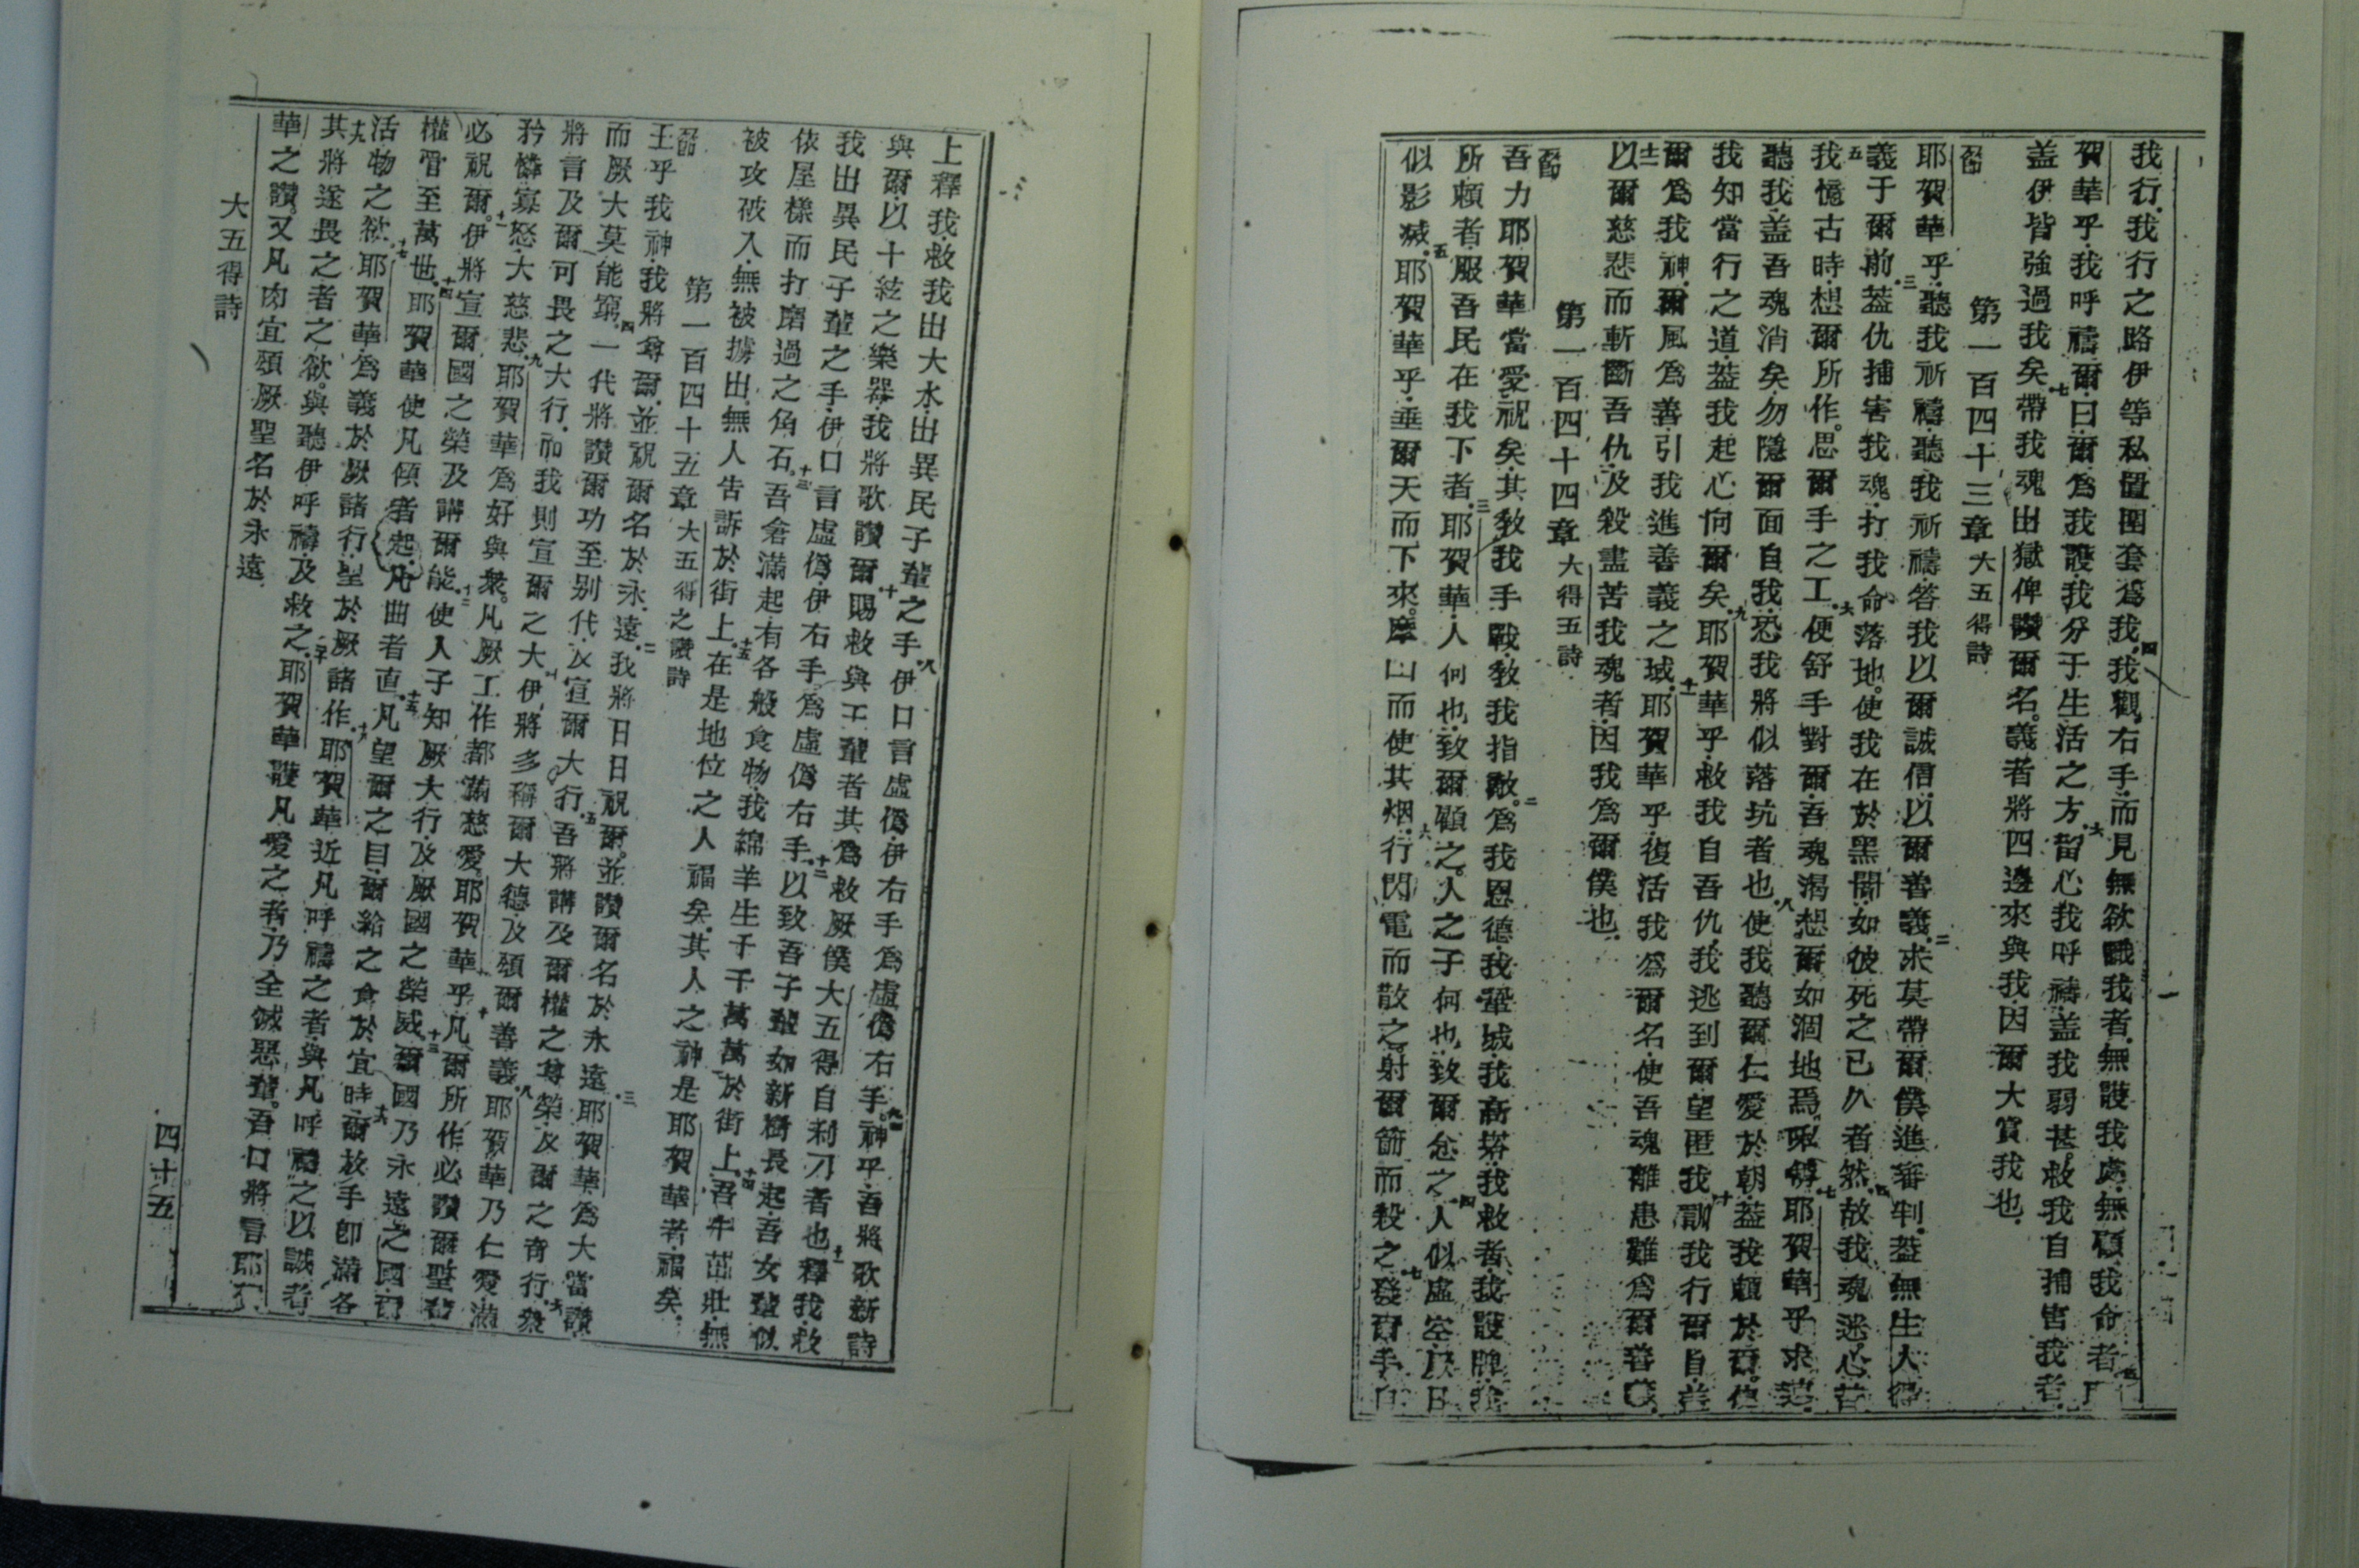 我行我行之路伊等私置圈套為我四我觀右手而見無欲識我者無護我處無顧我命者五耶
賀華乎我呼禱爾曰爾為我護我分于生活之方六留心我呼禱盖我弱甚救我自捕害我者
盖伊皆強過我矣七帶我魂出獄俾讚爾名義者將四邊來與我因爾大賞我也
第一百四十三章 大五得詩
耶賀華乎聽我祈禱聽我祈禱答我以爾誠信以爾善義二求莫帶爾僕進審判葢無生人得
義于爾前三葢仇捕害我魂打我命落地使我在於黑闇如彼死之已久者然四故我魂迷心
五我憶古時想爾所作思爾手之工六便舒手對爾吾魂渴想爾如涸地焉七耶賀華乎求
聽我盖吾魂消矣勿隱爾面自我恐我將似落坑者也八使我聽爾仁愛於朝葢我賴於爾使
我知當行之道葢我起心向爾矣九耶賀華乎救我自吾仇我逃到爾望匿我十訓我行爾旨葢
爾為我神爾風為善引我進善義之域十一耶賀華乎復活我為爾名使吾魂離患難為爾善義
十二以爾慈悲而斬斷吾仇及殺盡苦我魂者因我為爾僕也
第一百四十四章 大得五詩
吾力耶賀華當受祝矣其教我手戰教我指敵二為我恩德我鞏城我高塔我救者我護牌我
所賴者服吾民在我下者三耶賀華人何也致爾顧之人之子何也致爾念之四人似虛空厥日
似影滅五耶賀華乎垂爾天而下來摩山而使其烟六行閃電而散之射爾箭而殺之七發爾手自
上釋我救我出大水出異民子輩之手八伊口言虛僞伊右手為虛僞右手九神乎吾將歌新詩
與爾以十絃之樂器我將歌讚爾十賜救與王輩者其為救厥僕大五得自利刀者也十一釋我救
我出異民子輩之手伊口言虛僞伊右手為虛僞右手十二以致吾子輩如新樹長起吾女輩似
依屋樣而打磨過之角石十三吾倉滿起有各般食物我綿羊生千千萬萬於街上十四吾牛茁壯無
被攻破入無被擄出無人告訴於街上十五在是地位之人福矣其人之神是耶賀華者福矣
第一百四十五章 大五得之讚詩
王乎我神我將尊爾並祝爾名於永遠二我將日日祝爾並讚爾名於永遠三耶賀華為大當讚
而厥大莫能窮四一代將讚爾功至别代及宣爾大行五吾將講及爾權之尊榮及爾之奇行六衆
將言及爾可畏之大行而我則宣爾之大七伊將多稱爾大德及頌爾善義八耶賀華乃仁愛滿
矜憐寡怒大慈悲九耶賀華為好與衆凡厥工作都滿慈愛十耶賀華乎凡爾所作必讚爾聖者
必祝爾十一伊將宣爾國之榮及講爾能十二使人子知厥大行及厥國之榮威十三爾國乃永遠之國爾
權管至萬世十四耶賀華使凡傾者起凡曲者直十五凡望爾之目爾給之食於宜時十六爾放手即滿各
活物之欲十七耶賀華為義於厥諸行聖於厥諸作十八耶賀華近凡呼禱之者與凡呼禱之以誠者
十九其將遂畏之者之欲與聽伊呼禱及救之二十耶賀華護凡愛之者乃全滅惡輩吾口將言耶賀
華之讚又凡肉宜頌厥聖名於永遠
大五得詩
四十五